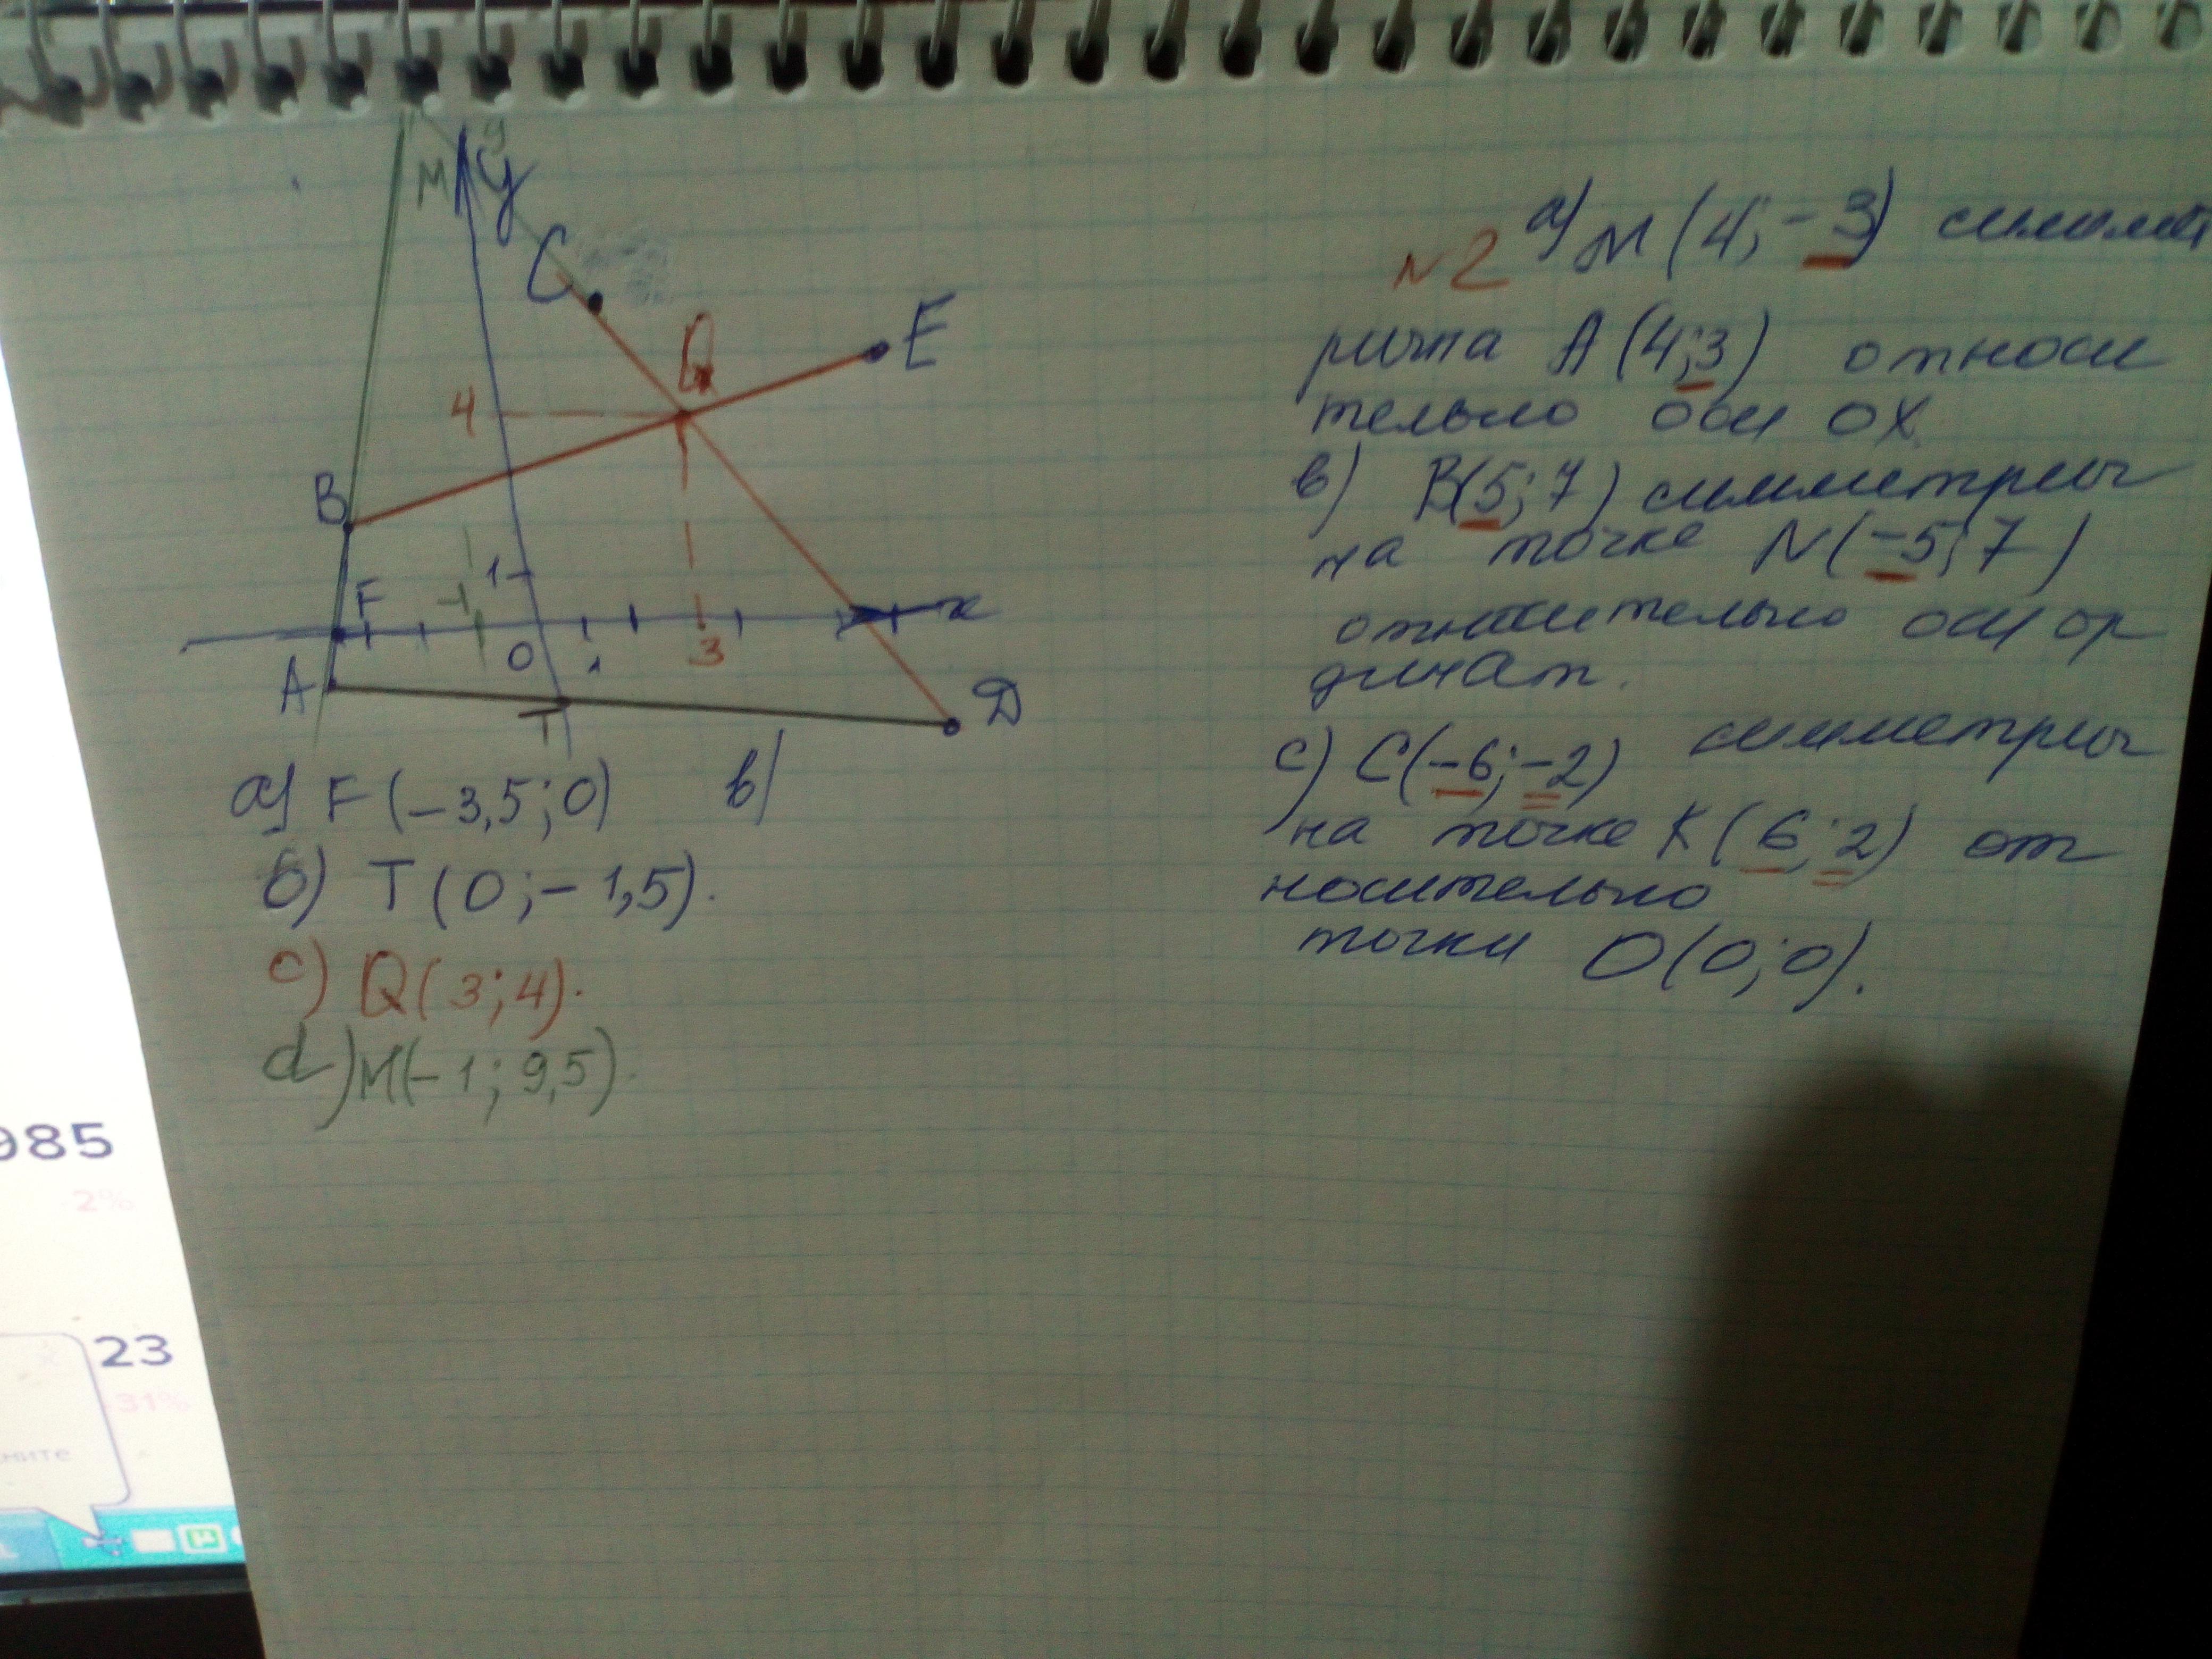 у
M
С
Q
E
4
В
F
-1
1
х
А
О
1
3
T
D
а) F(-3,5; 0) в)
б) T(0; -1,5).
c) Q(3; 4).
d) M(-1; 9,5).
№2 а) M(4; -3) симмет
рична А(4; 3) относи
тельно оси ОХ
в) В(5; 7) симметрич
на точке N(-5; 7)
относительно оси ор
динат.
с) С(-6; -2) симметрич
на точке К(6; 2) от
носительно
точки О(0; 0).
985
2%
23
31%
ните